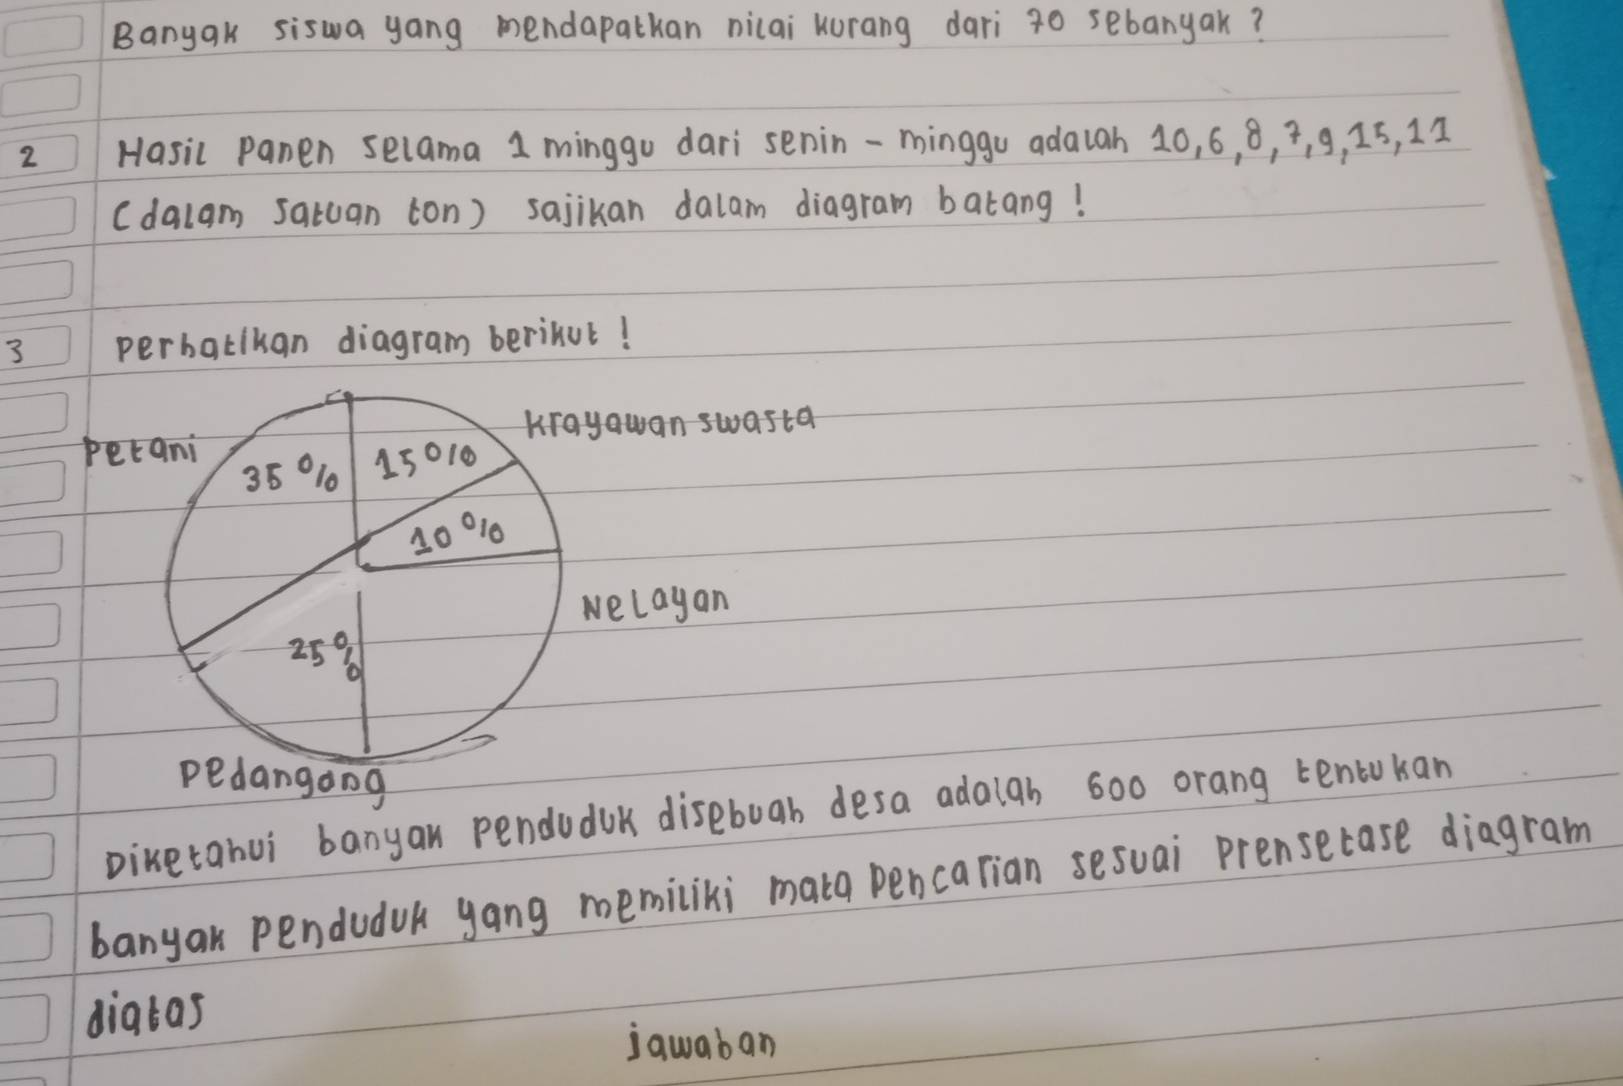 Banyak siswa yang mendapatkan nilai kurang dari 70 sebanyak ?
2 Hasil Panen selama 1 minggu dari senin - minggu adalah 10, 6, 8, 7, 9, 15, 11
(dalam satuan ton) sajikan dalam diagram batang !
3 perhatikan diagram berikut !
Krayawan swasta
Petani
35 % 15 %
10 %
Nelayan
25 %
pedangang
Diketahui banyak penduduk disebuah desa adalah 600 orang tentukan
banyak penduduk yang memiliki mata pencarian sesuai prensetase diagram
diatas
jawaban